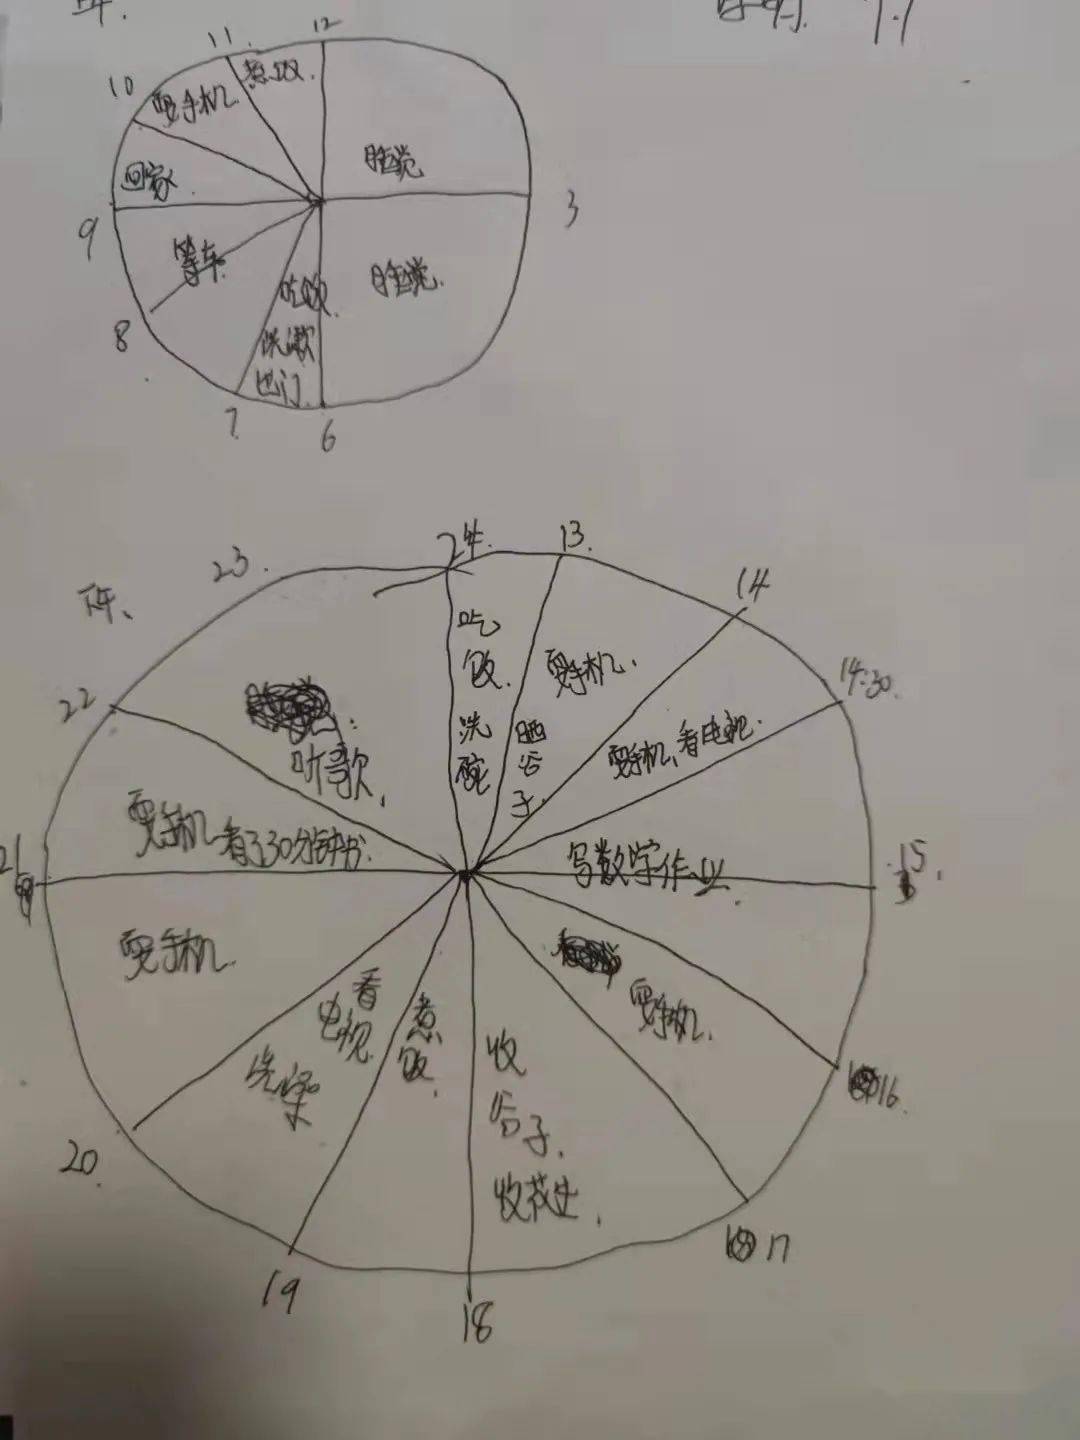 7.7
12
11
10
煮饭.
耍手机
睡觉
回家
3
9
等车
睡觉.
吃饭.
洗漱
出门.
8
7
6
24.
13.
14
23.
下午、
14:30.
22
吃饭.
洗碗
耍手机.
晒谷子.
耍手机、看电视.
听歌、
耍手机 看了30分钟书.
写数学作业.
21
15.
耍手机.
耍手机.
看电视
洗澡
煮饭.
收谷子.
16.
20.
17
19
18